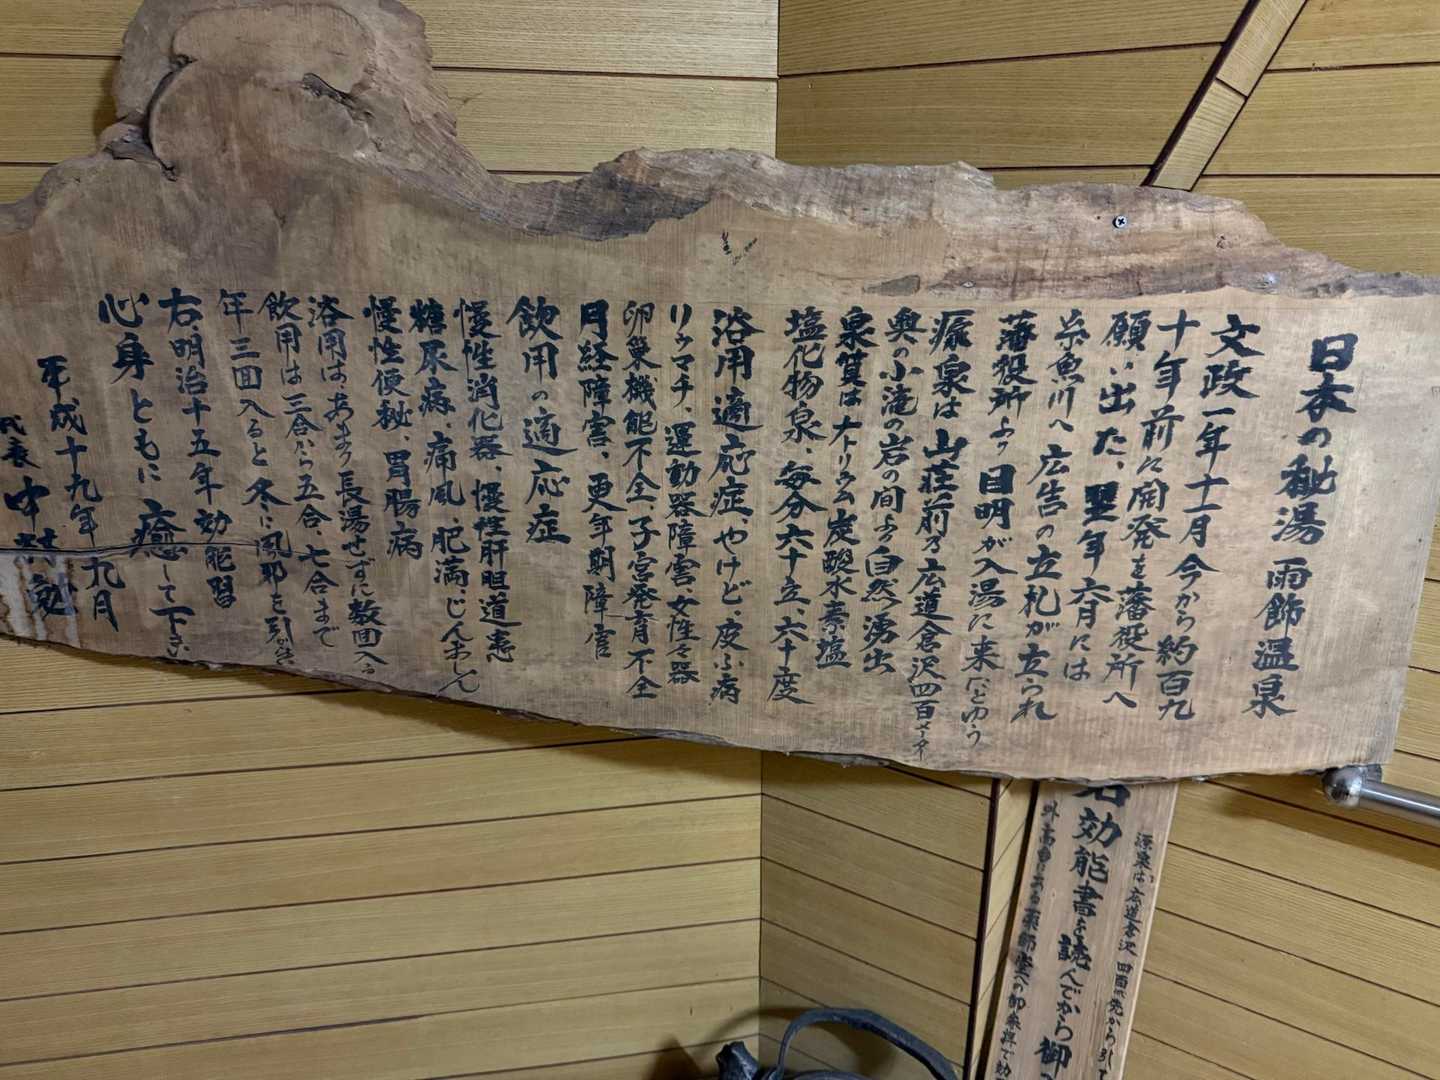 日本の秘湯 雨飾温泉
文政一年十一月 今から約百九
十年前に開発を藩役所へ
願い出た、翌年六月には
糸魚川へ広告の立札が立られ
藩役所より目明が入湯に来たとゆう
源泉は山荘前の広道倉沢四百メーター
奥の小滝の岩の間より自然湧出
泉質はナトリウム炭酸水素塩
塩化物泉、毎分六十立、六十度
浴用適応症、やけど、皮ふ病
リゥマチ、運動器障害、女性々器
卵巣機能不全、子宮発育不全
月経障害、更年期障害
飲用の適応症
慢性消化器、慢性肝胆道患
糖尿病、痛風、肥満、じんましん
慢性便秘、胃腸病
浴用はあまり長湯せずに数回入る
飲用は三合から五合、七合まで
年三回入ると冬に風邪を引かぬ
右、明治十五年効能書
心身ともに癒して下さい
平成十九年九月
代表 中村
源泉は広道倉沢四百 先から引
右効能書を読んでから御
外高台にある薬師堂への御参拝で効